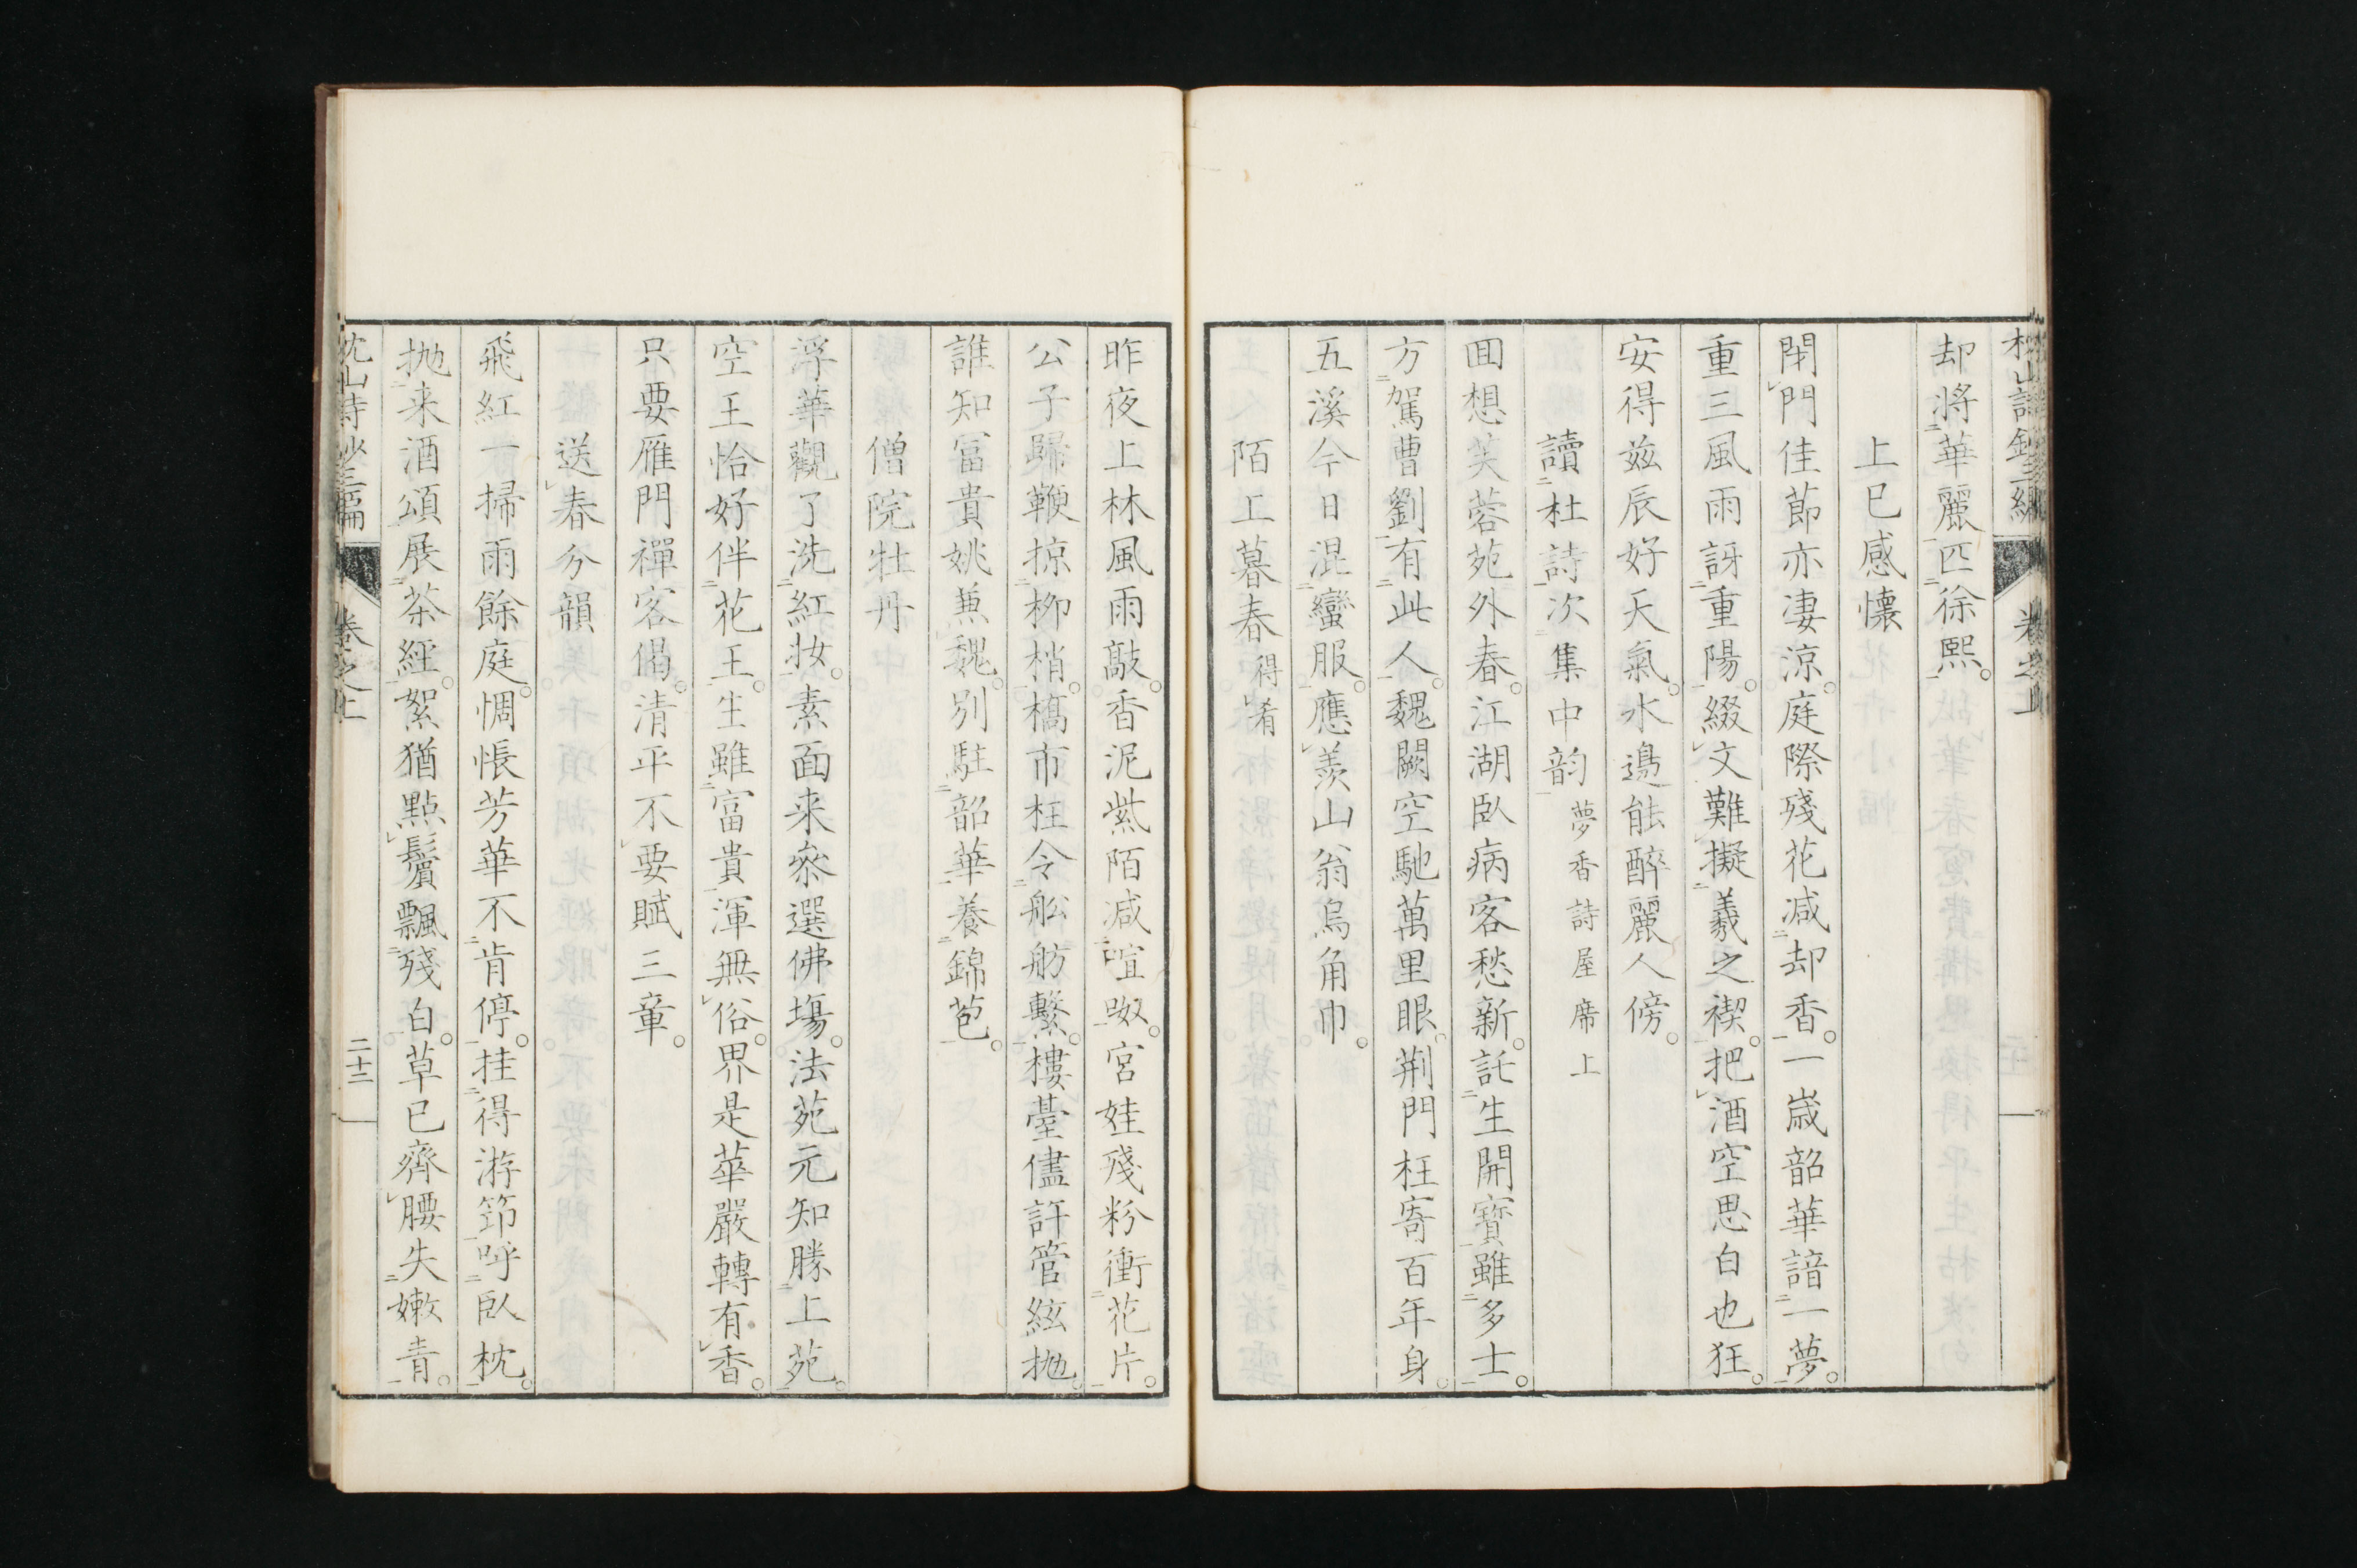 枕山詩鈔三編 卷之上
却將華麗匹徐熙
上巳感懷
閉門佳節亦凄涼庭際殘花减却香一歲韶華諳一夢
重三風雨訝重陽綴文難擬羲之禊把酒空思白也狂
安得茲辰好天氣水邊能醉麗人傍
讀杜詩次集中韵 夢香詩屋席上
囬想芙蓉苑外春江湖臥病客愁新託生開寶雖多士
方駕曹劉有此人魏闕空馳萬里眼荊門枉寄百年身
五溪今日混蠻服應羨山翁烏角巾
陌上暮春 得肴
昨夜上林風雨敲香泥紫陌减喧呶宮娃殘粉衝花片
公子歸鞭掠柳梢橋市枉令舩舫繫樓臺儘許管絃抛
誰知富貴姚兼魏別駐韶華養錦苞
僧院牡丹
浮華觀了洗紅妝素面来叅選佛塲法苑元知勝上苑
空王恰好伴花王生雖富貴渾無俗界是華嚴轉有香
只要雁門禪客偈清平不要賦三章
送春分韻
飛紅一掃雨餘庭惆悵芳華不肯停挂得游笻呼臥枕
抛来酒頌展茶經絮猶點鬢飄殘白草已齊腰失嫩青
枕山詩鈔三編 卷之上 二十二